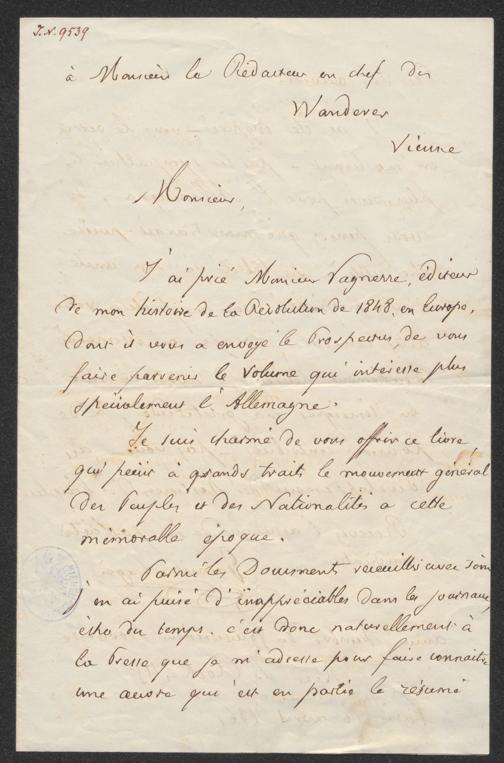 J.N. 9539
à Monsieur le Rédacteur en chef du
Wanderer
Vienne
Monsieur,
J'ai prié Monsieur Pagnerre, éditeur
de mon histoire de la Révolution de 1848, en Europe,
dont il vous a envoyé le Prospectus, de vous
faire parvenir le volume qui intéresse plus
spécialement l'Allemagne.
Je suis charmé de vous offrir ce livre
qui peint à grands traits le mouvement général
des Peuples et des Nationalités a cette
mémorable époque.
Parmi les Documents recueillis avec soin
j'en ai puisé d'inappréciables dans les journaux,
écho du temps. c'est donc naturellement à
la Presse que je m'adresse pour faire connaître
une œuvre qui est en partie le résumé